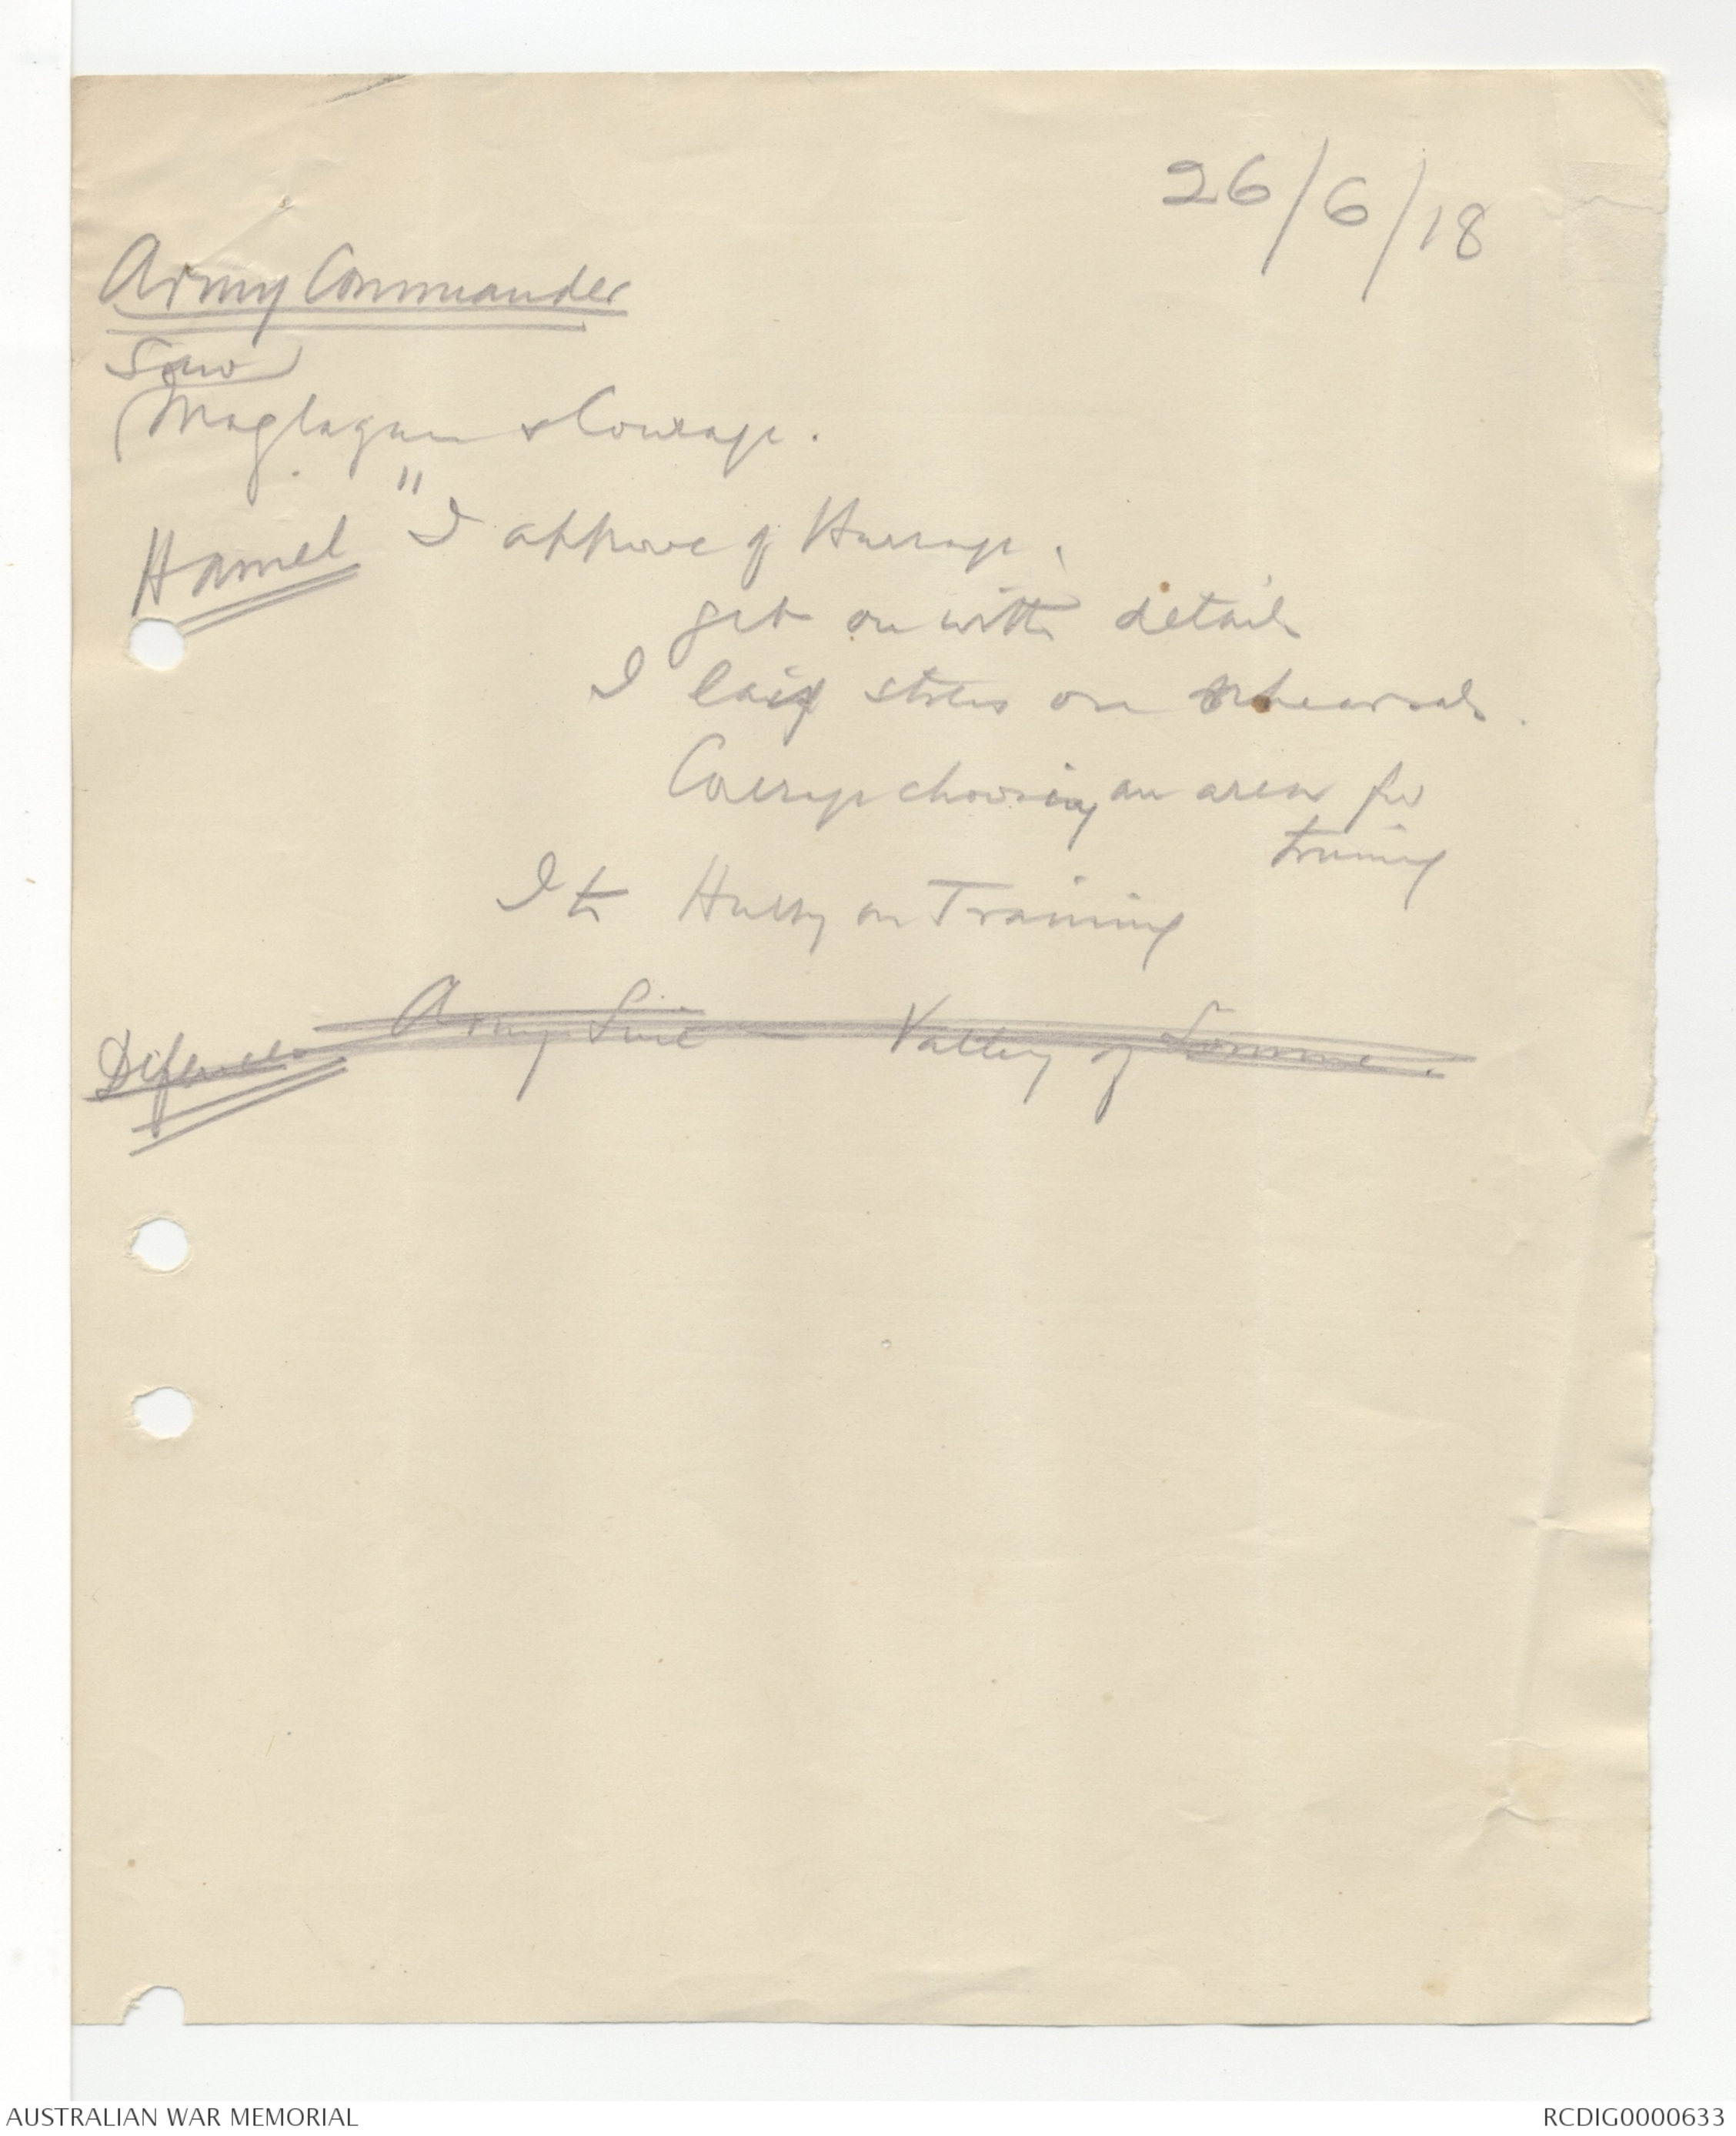 26/6/18
Army Commander
Saw
Maglagan & Courage.
Hamel "I approve of
get on with details
I laid stress on rehearsals.
Courage choosing an area for
training
I to Hurry on Training
Defences Army Line Valley of Somme.
AUSTRALIAN WAR MEMORIAL
RCDIG0000633